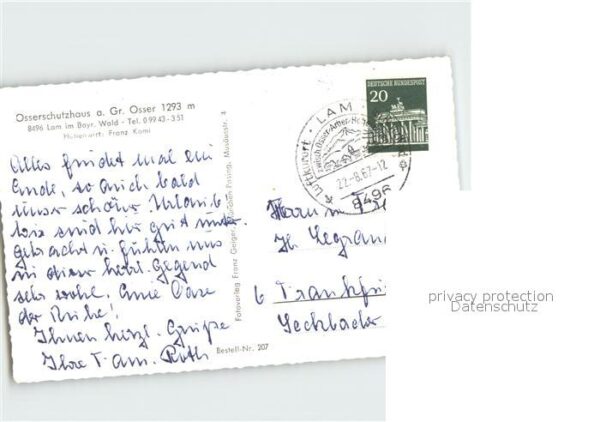 Osserschutzhaus a. Gr. Osser 1293 m
8496 Lam im Bayr. Wald - Tel. 09943-351
Hüttenwirt: Franz Koni
Alles findet mal ein
Ende, so auch bald
unser schöner Urlaub!
Wir sind hier gut unter-
gebracht u. fühlen uns
in dieser herrl. Gegend
sehr wohl. Eine Oase
der Ruhe!
Ihnen herzl. Grüße
Ihre Fam. Roth
Bestell-Nr. 207
Fotoverlag Franz Geiger, München-Pasing
DEUTSCHE BUNDESPOST
20
LAM
Luftkurort
zwischen Osser-Arber-
22.-8.67-12
8496
Herrn u. Fr
Legran
6 Frankfu
Seckbacher
privacy protection
Datenschutz